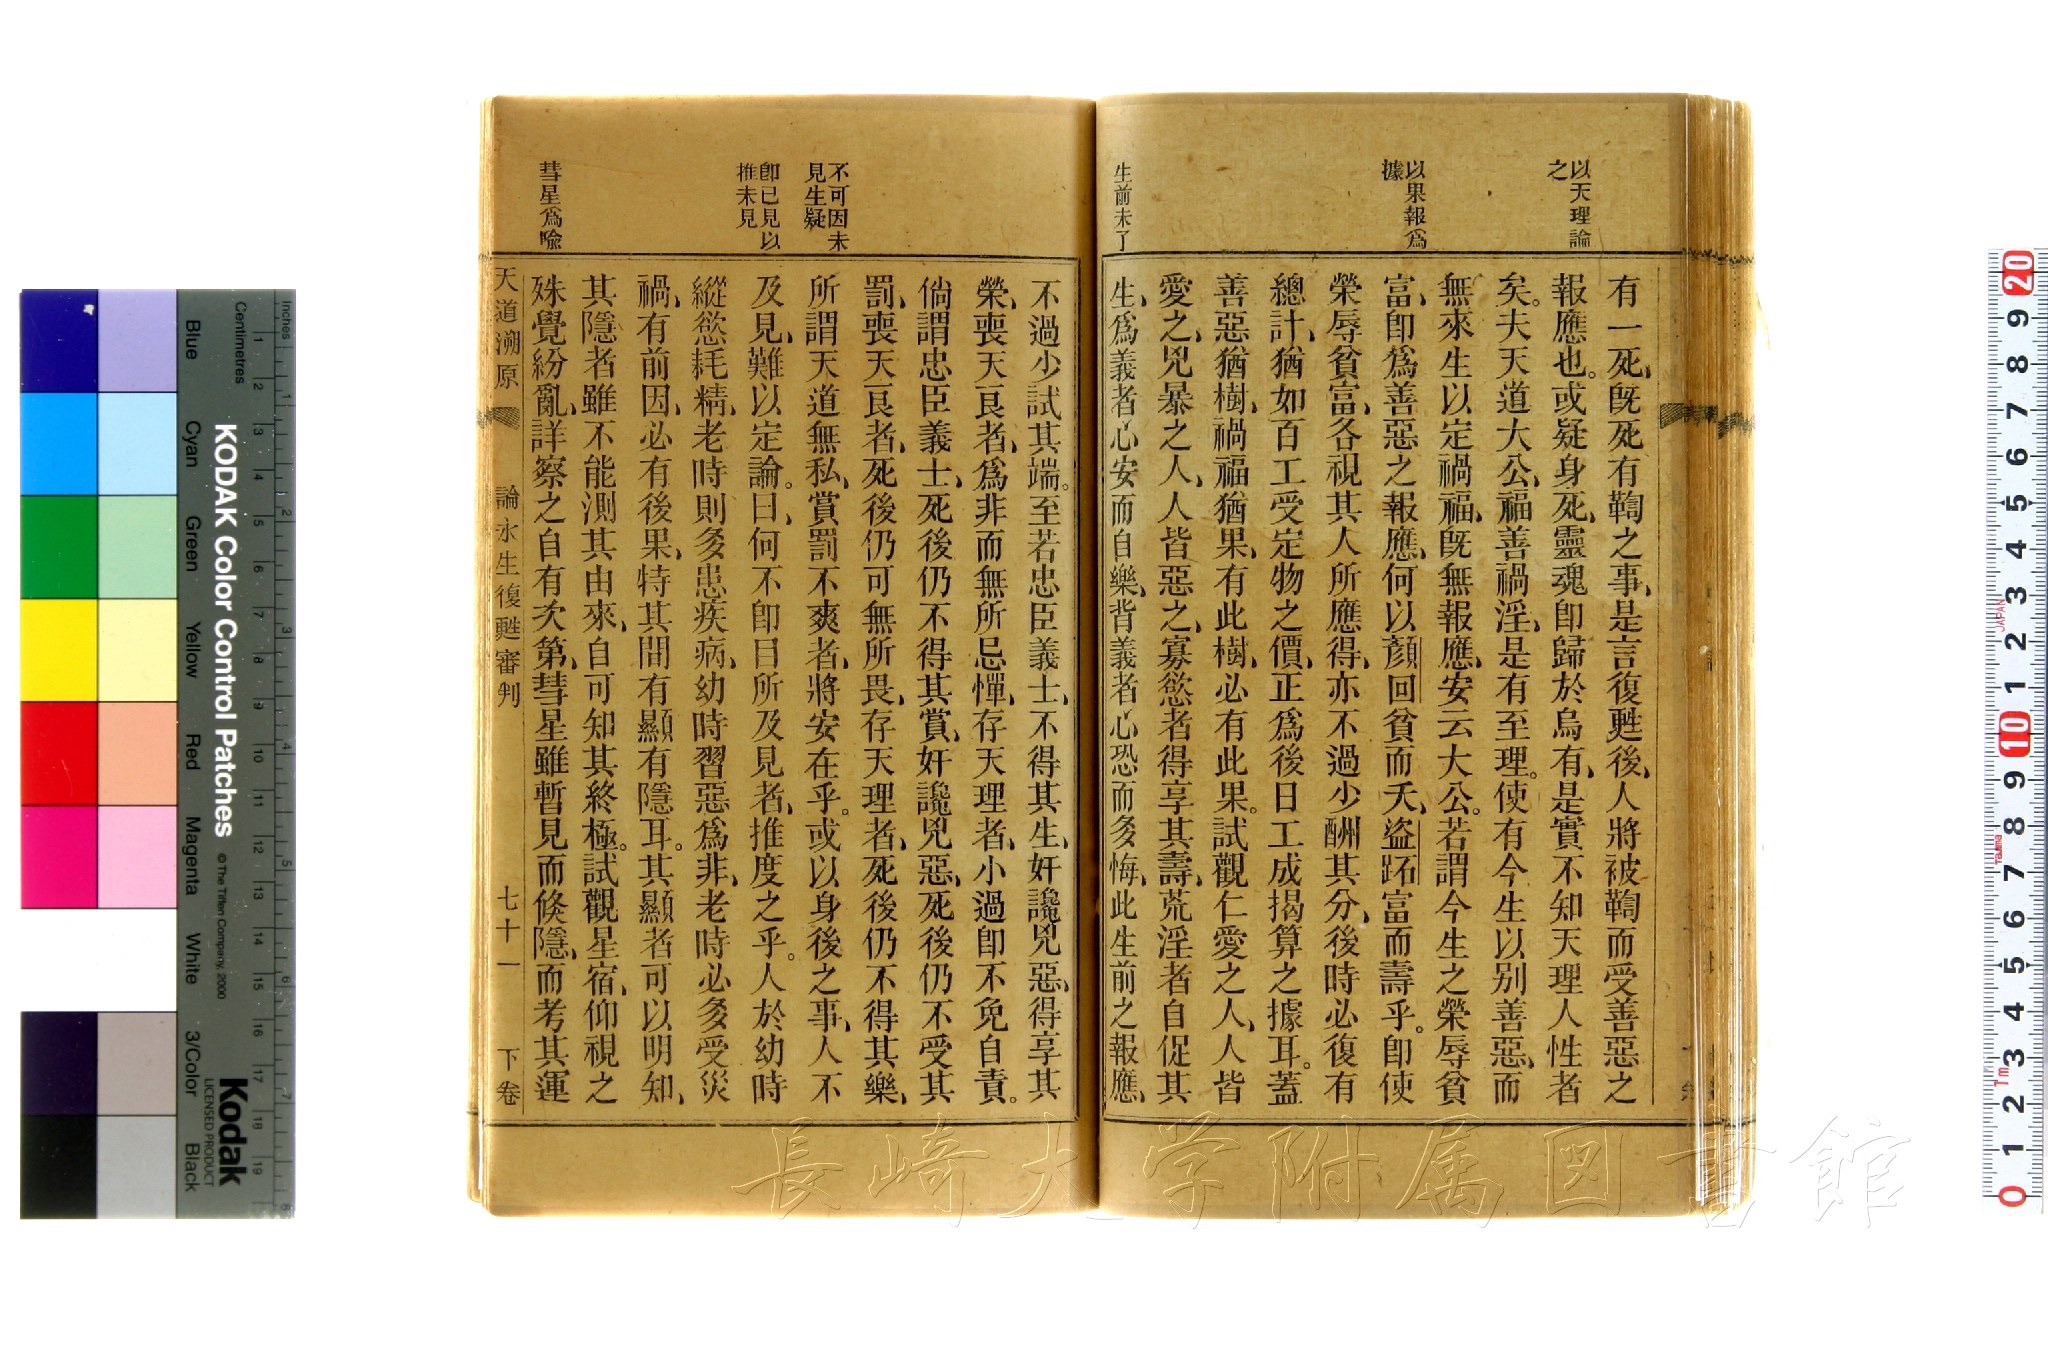 以天理論
之
以果報爲
據
生前未了
有一死、旣死有鞫之事、是言復甦後、人將被鞫而受善惡之
報應也。或疑身死、靈魂卽歸於烏有、是實不知天理人性者
矣。夫天道大公、福善禍淫、是有至理。使有今生以别善惡、而
無來生以定禍福、旣無報應、安云大公。若謂今生之榮辱貧
富、卽爲善惡之報應、何以顏回貧而夭、盜跖富而壽乎。卽使
榮辱貧富、各視其人所應得、亦不過少酬其分、後時必復有
總計、猶如百工受定物之價、正爲後日工成揭算之據耳。蓋
善惡猶樹、禍福猶果、有此樹、必有此果。試觀仁愛之人、人皆
愛之、兇暴之人、人皆惡之、寡慾者得享其壽、荒淫者自促其
生、爲義者心安而自樂、背義者心恐而多悔、此生前之報應、
不可因未
見生疑
卽已見以
推未見
彗星爲喩
不過少試其端。至若忠臣義士、不得其生、奸讒兇惡、得享其
榮、喪天良者、爲非而無所忌憚、存天理者、小過卽不免自責。
倘謂忠臣義士、死後仍不得其賞、奸讒兇惡、死後仍不受其
罰、喪天良者、死後仍可無所畏、存天理者、死後仍不得其樂、
所謂天道無私、賞罰不爽者、將安在乎。或以身後之事、人不
及見、難以定論。曰、何不卽目所及見者、推度之乎。人於幼時
縱慾耗精、老時則多患疾病、幼時習惡爲非、老時必多受災
禍、有前因、必有後果、特其間有顯有隱耳。其顯者可以明知、
其隱者雖不能測其由來、自可知其終極。試觀星宿、仰視之
殊覺紛亂、詳察之自有次第、彗星雖暫見而倏隱、而考其運
天道溯原 論永生復甦審判 七十一 下卷
長崎大学附属図書館
KODAK Color Control Patches
© The Tiffen Company, 2000
Kodak
LICENSED PRODUCT
Inches
Centimetres
Blue
Cyan
Green
Yellow
Red
Magenta
White
3/Color
Black
JAPAN